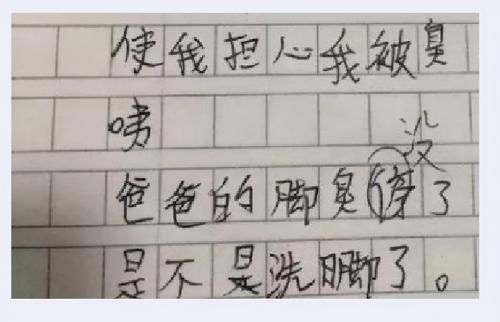 使我担心我被臭
咦
爸爸的脚臭没了
是不是洗脚了。